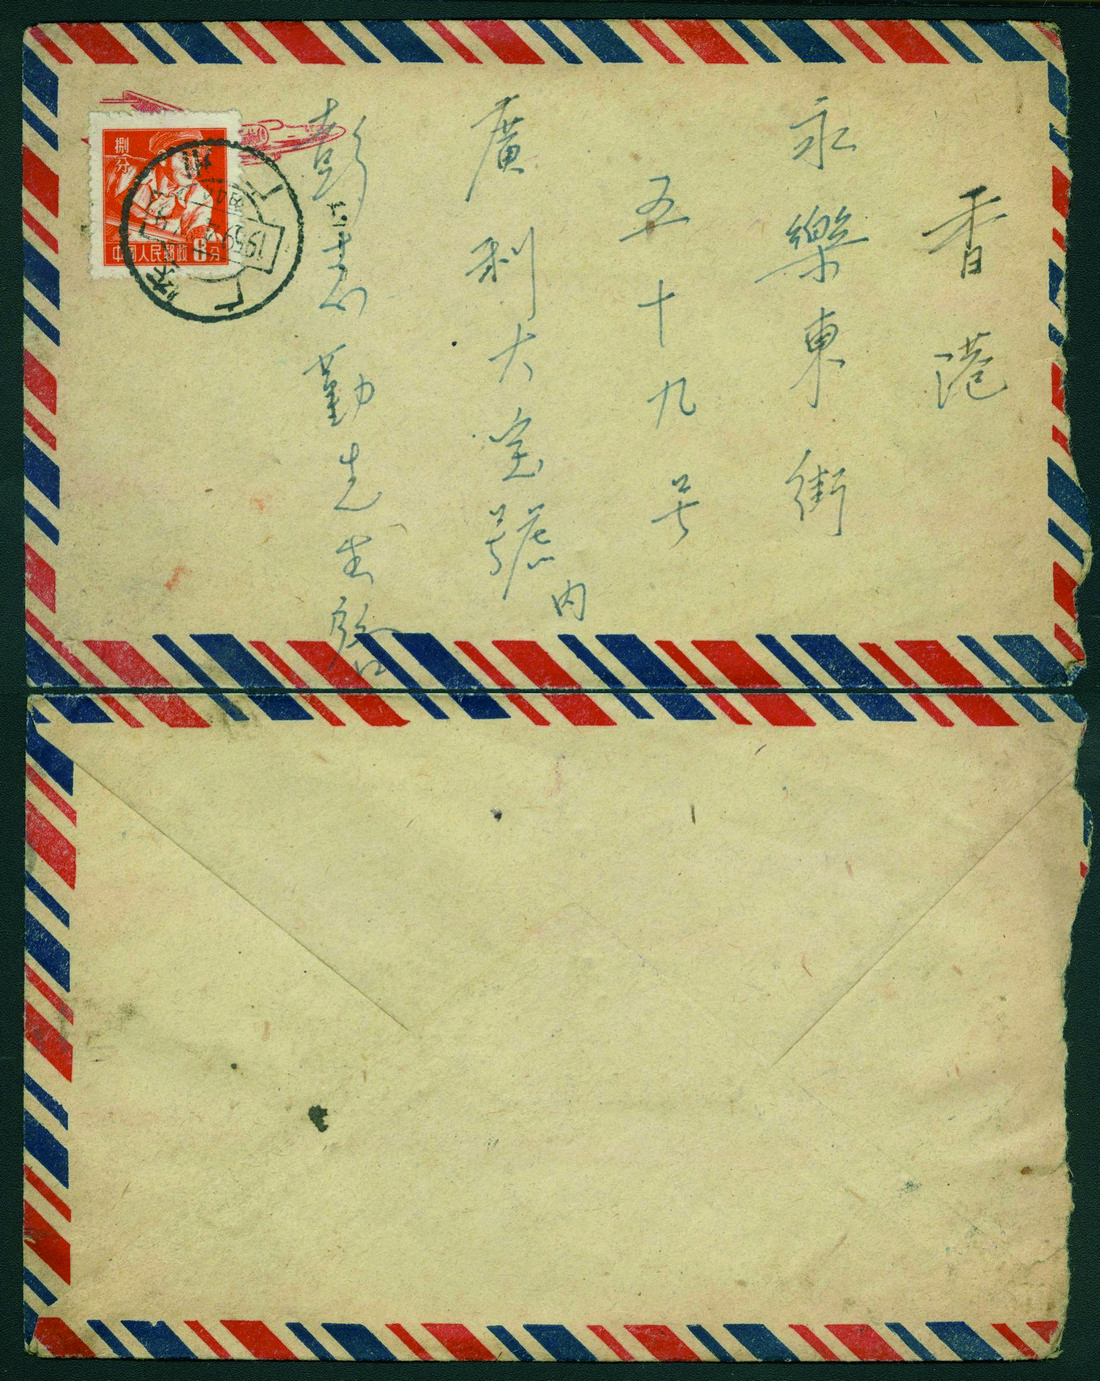 香港
永樂東街
五十九号
廣利大宝號
内
彭志勤先生啟
捌分
中国人民郵政 8分
广州
1959